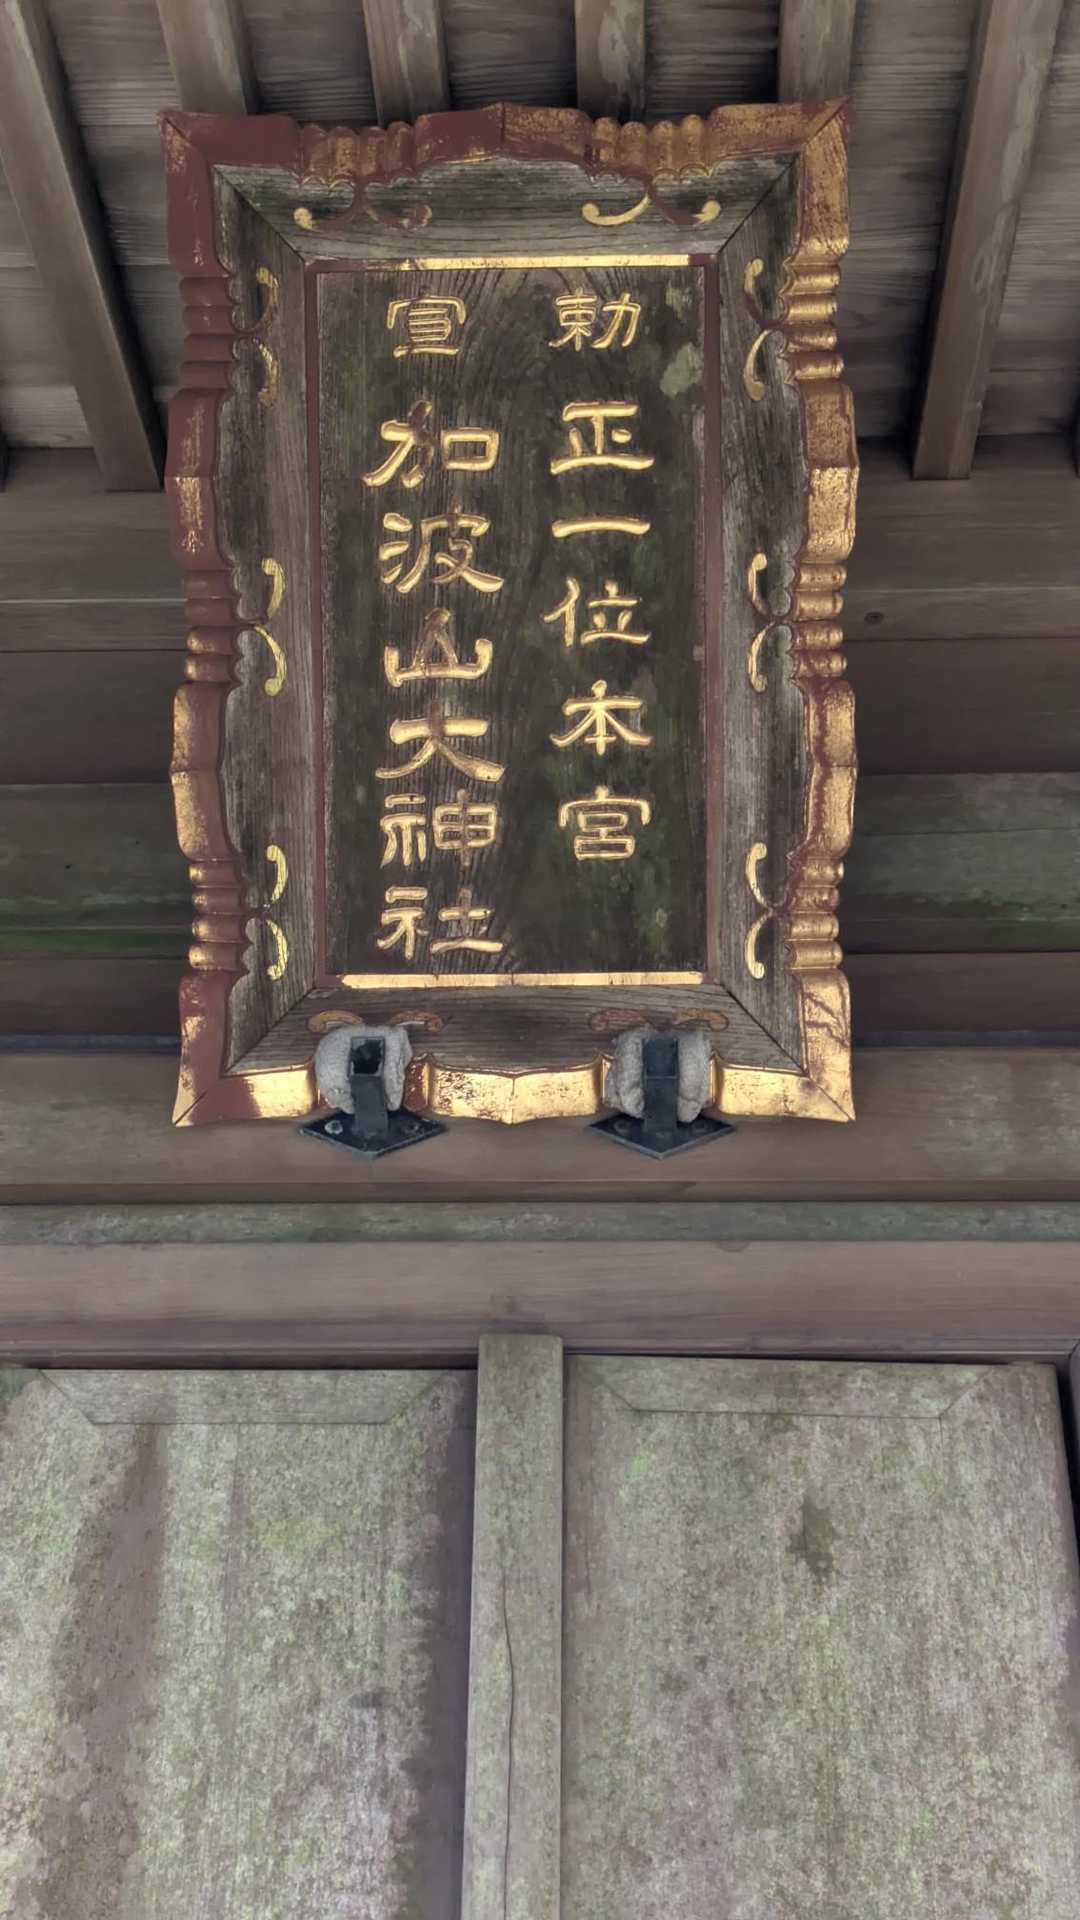 勅正一位本宮
宣加波山大神社